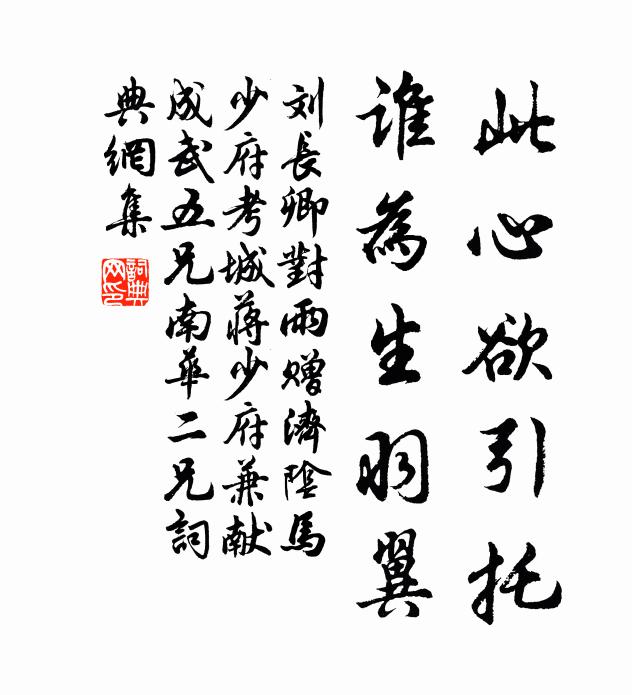 此心欲引托
谁為生羽翼
刘長卿對雨赠濟陰馬
少府考城蒋少府兼献
成武五兄南華二兄詞
典網集
詞典
网印